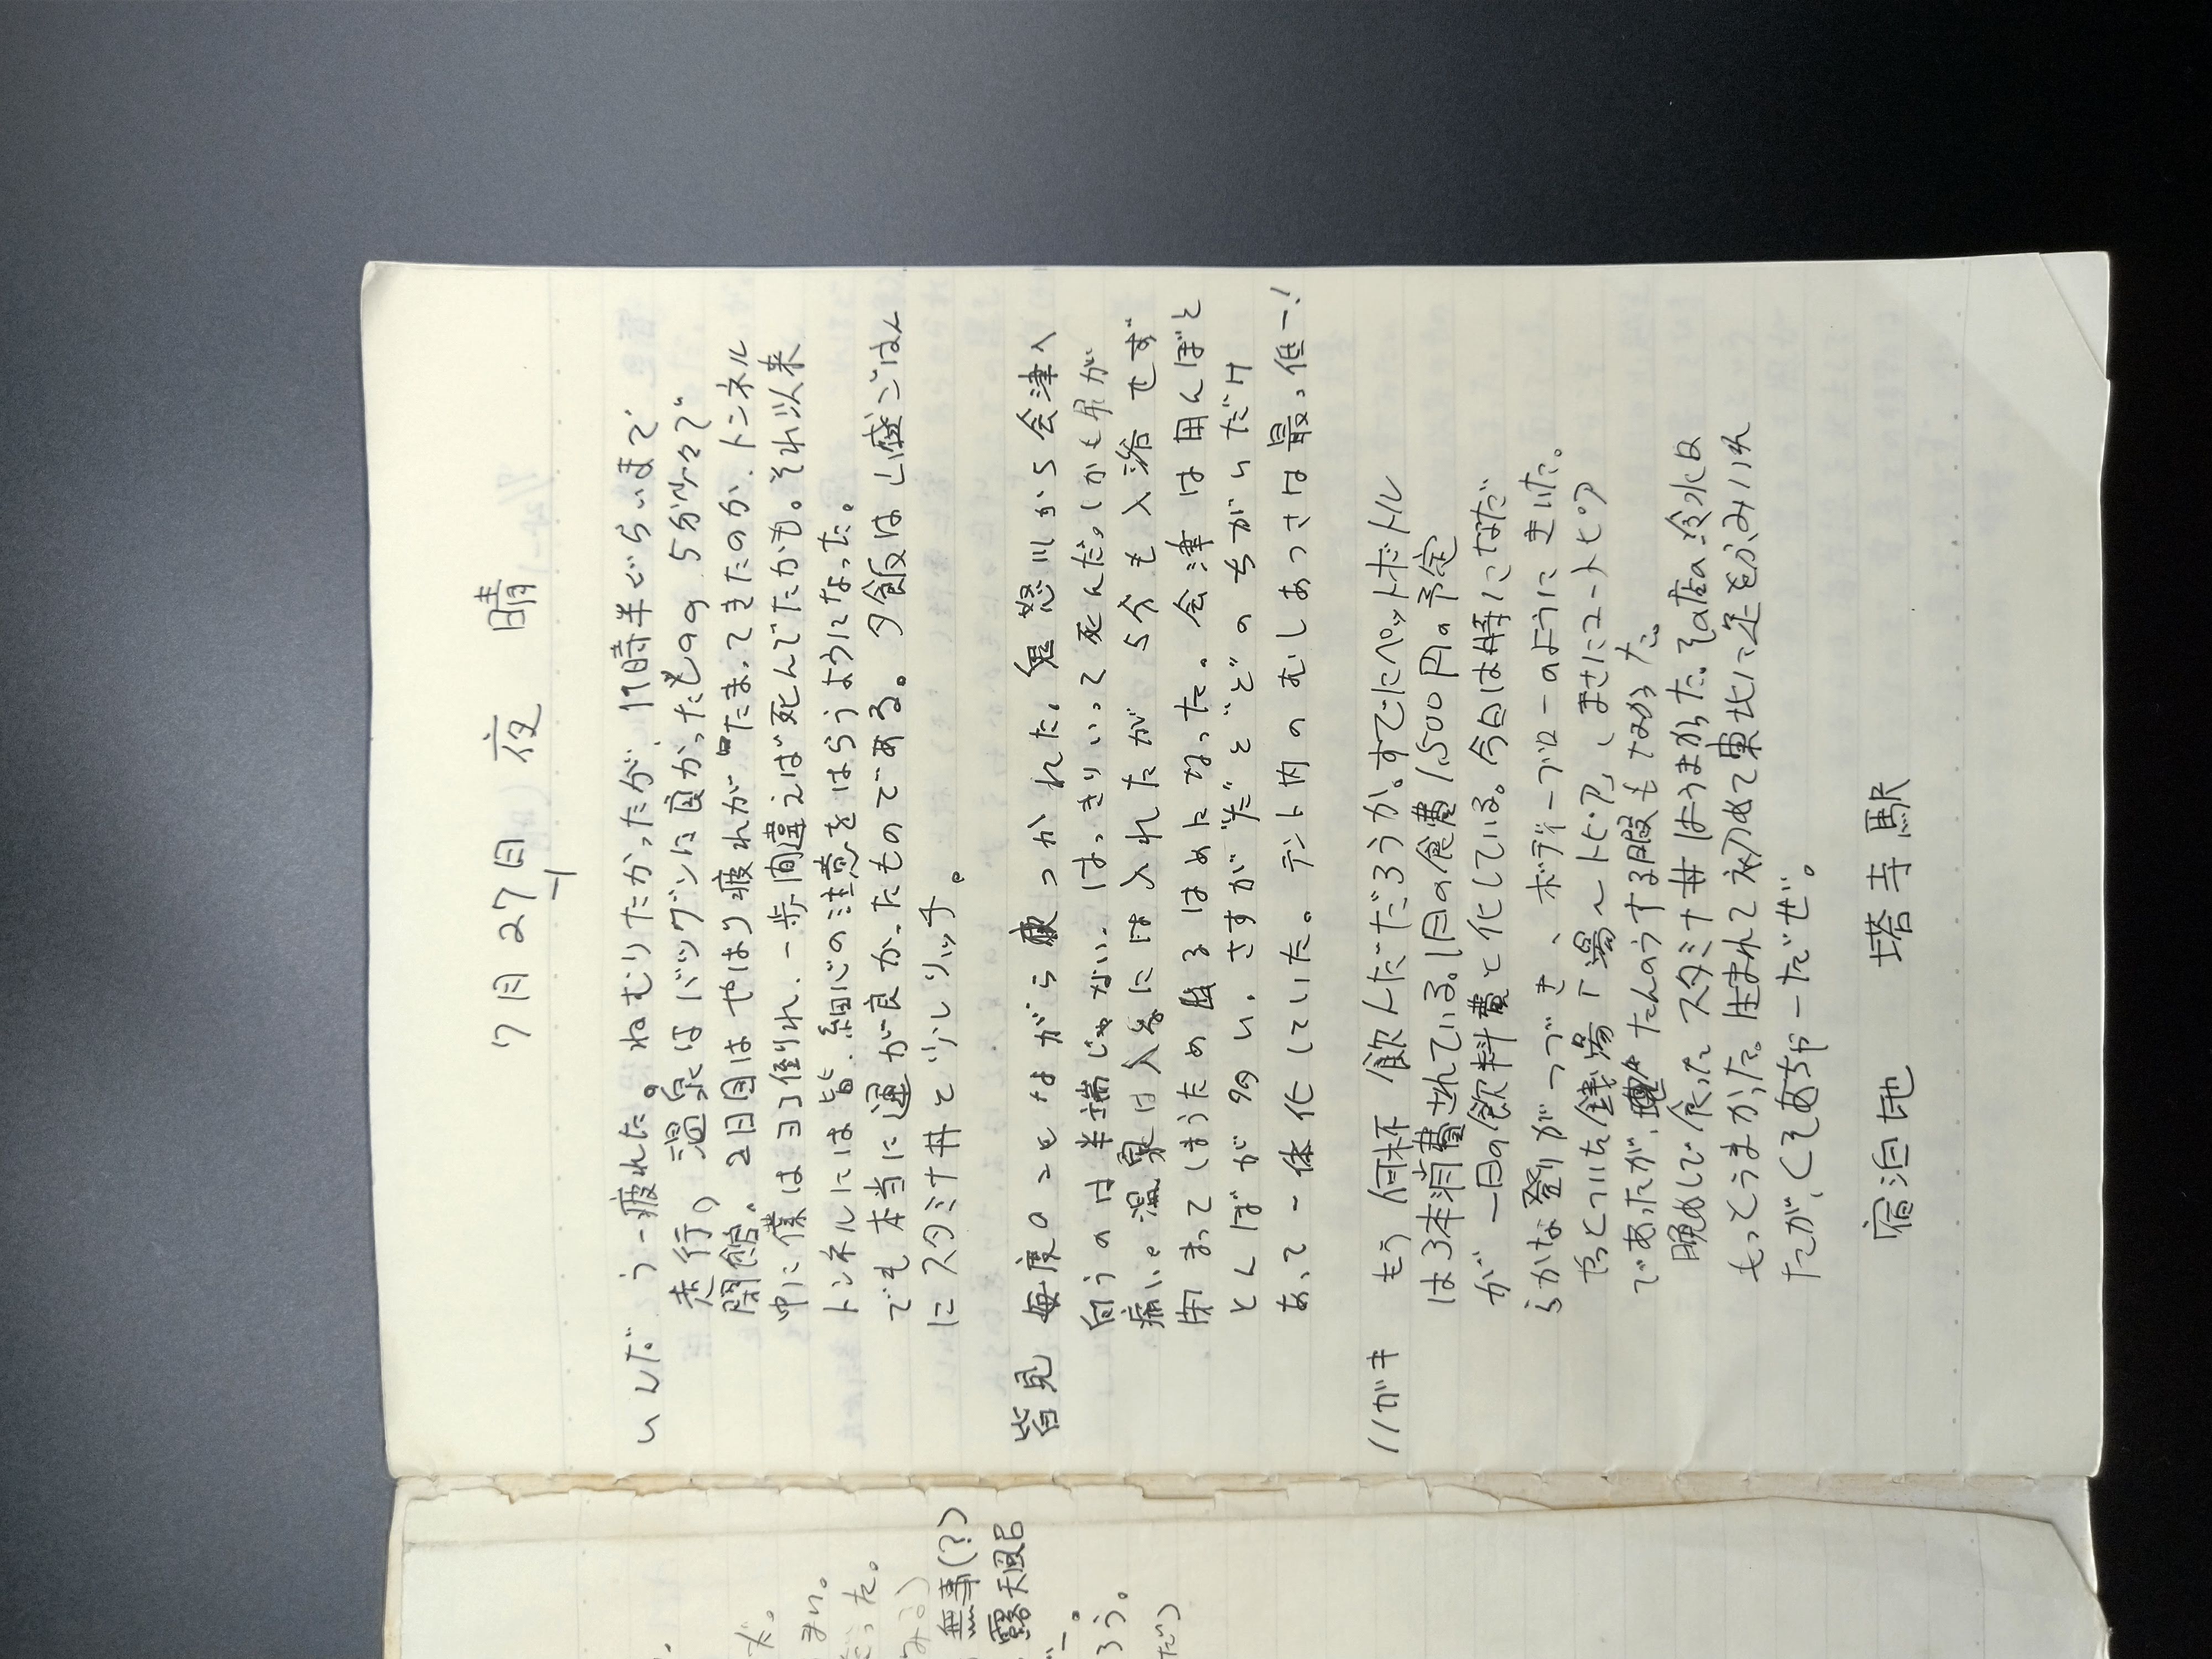 7月27日 夜 晴
いいだ うー疲れた。ねむりたかったが、17時半ぐらいまで
走行。温泉はバツグンに良かったものの 5分少々で
閉館。2日目はやはり疲れがたまってきたのか、トンネル
中に僕はヨコ倒れ、一歩間違えば死んでたかも。それ以来
トンネルには皆、細心の注意をはらうようになった。
でも本当に運が良かったものである。夕飯は山盛ごはん
にスタミナ丼と少しリッチ。
皆見 毎度のことながら疲つかれた。鬼怒川から会津へ
向うのは半端じゃない。はっきりいって死んだ。しかも尻が
痛い。温泉は入るには入れたが5分も入浴せず
閉まってしまうため出るはめになった。会津は田んぼと
とんぼが多い。さすがだどどのちがいだけ
あって一体化していた。テント内のむしあつさは最っ低ー!
ハガキ もう何杯飲んだだろうか。すでにペットボトル
は3本消費されている。1日の食費1,500円の予定
が一日の飲料費と化している。今日は特になだ
らかな登りがつづき、ボディーブローのようにきいた。
やっとついた銭湯「湯〜トピア」、まさにユートピア
であったが、たんのうする暇もなかった。
晩めしで食ったスタミナ丼はうまかった。その店の冷水は
もっとうまかった。生まれて初めて東北に足をふみいれ
たが、くそあちゃーだぜ。
宿泊地 塔寺駅
無事(?)
露天風呂
ろう。
だ。
まい。
だった。